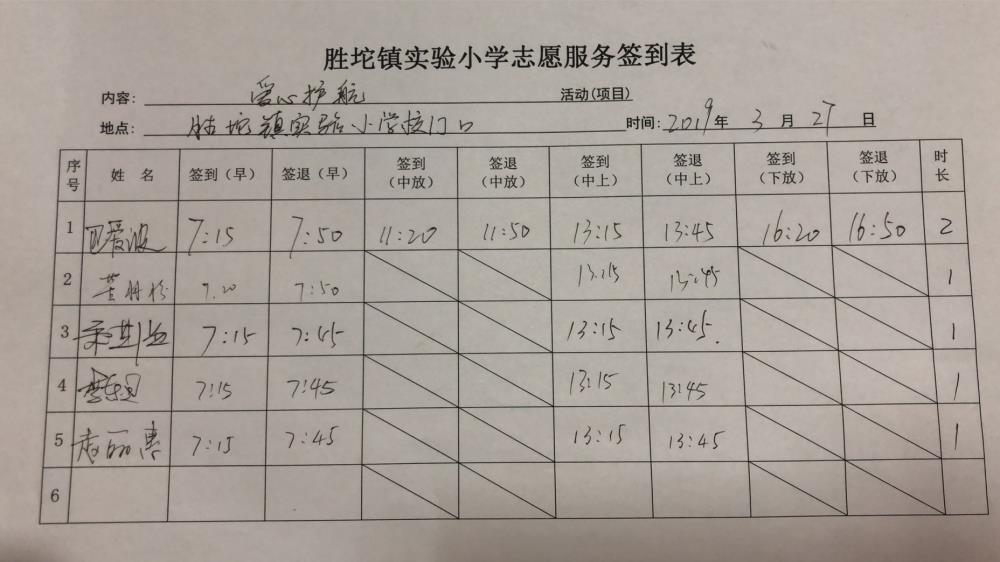 胜坨镇实验小学志愿服务签到表
内容: 爱心护航 活动(项目)
地点: 胜坨镇实验小学校门口 时间: 2019年 3月 27日
序号 姓 名 签到(早) 签退(早) 签到(中放) 签退(中放) 签到(中上) 签退(中上) 签到(下放) 签退(下放) 时长
1 爱波 7:15 7:50 11:20 11:50 13:15 13:45 16:20 16:50 2
2 7.20 7:50 13:15 13:45 1
3 7:15 7:45 13:15 13:45. 1
4 7:15 7:45 13:15 13:45 1
5 丽惠 7:15 7:45 13:15 13:45 1
6